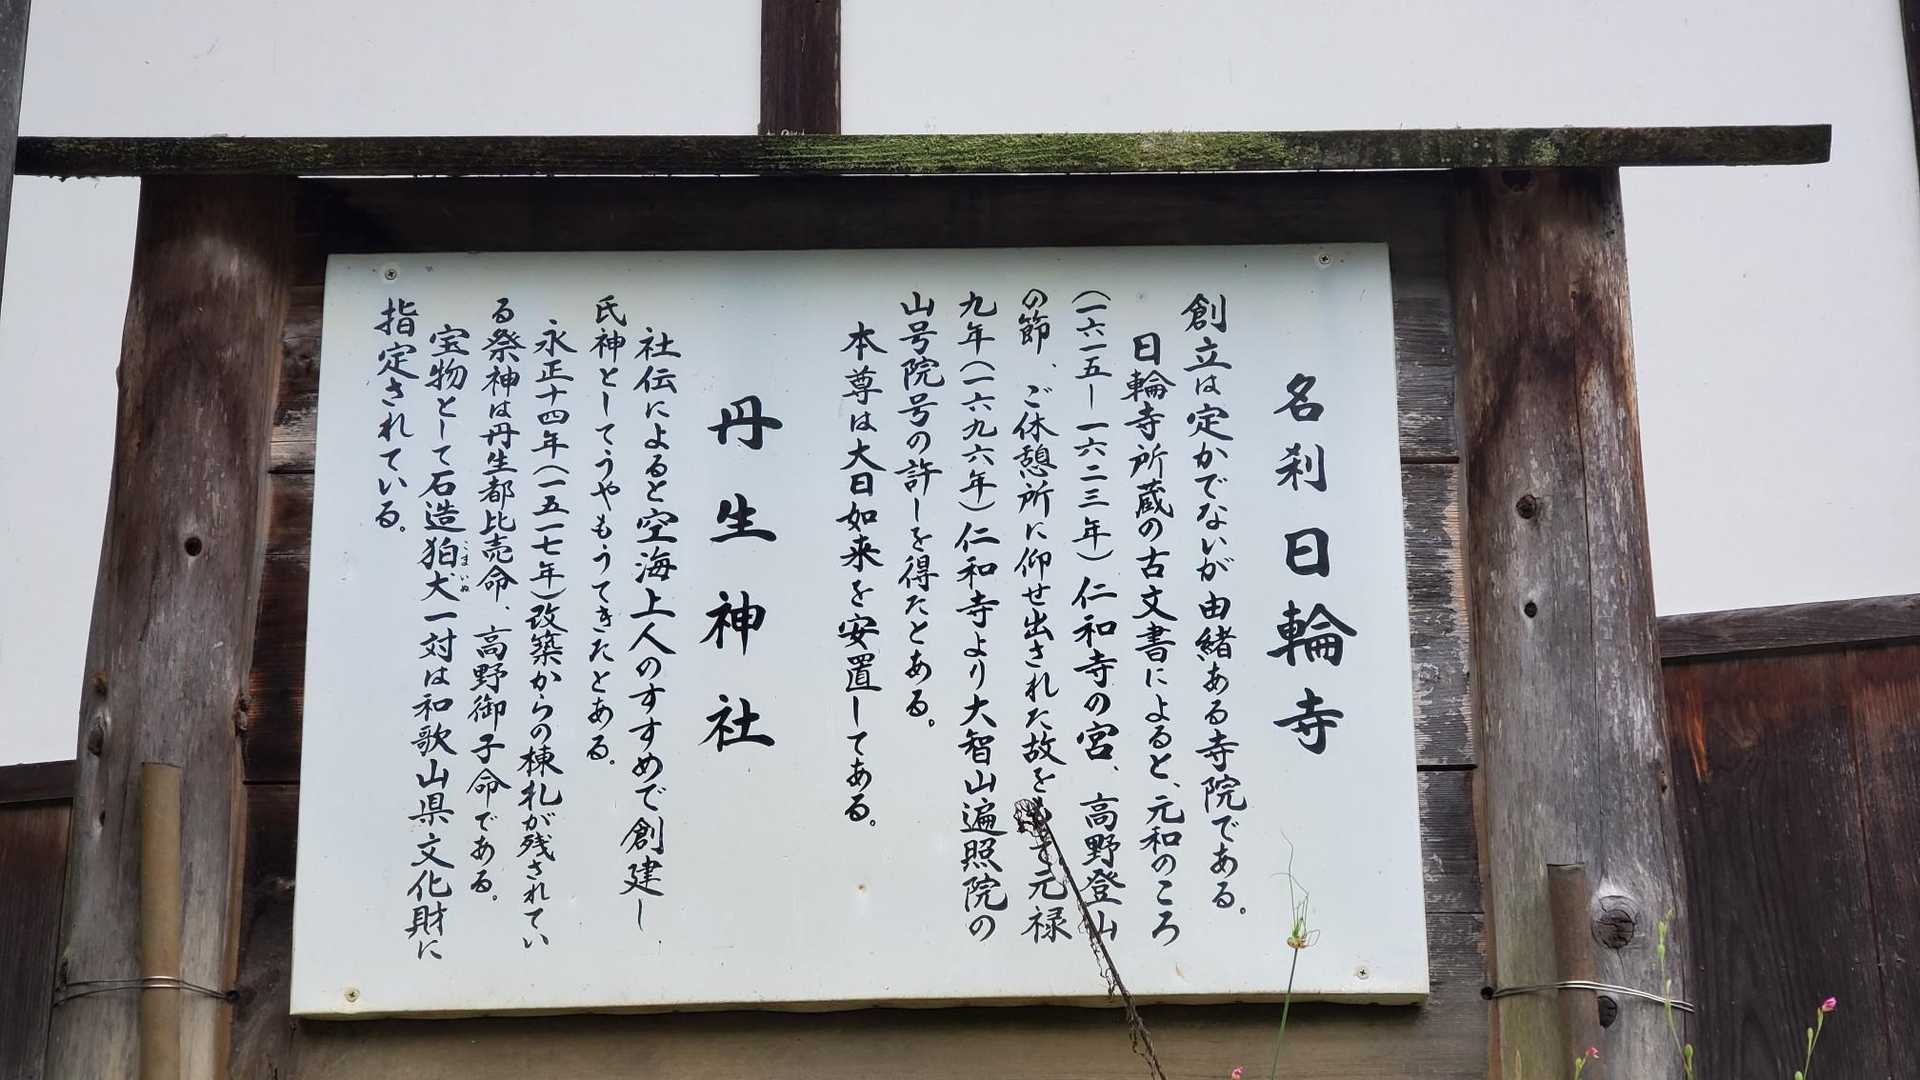 名刹日輪寺
創立は定かでないが由緒ある寺院である。
日輪寺所蔵の古文書によると、元和のころ
(一六一五ー一六二三年)仁和寺の宮、高野登山
の節、ご休憩所に仰せ出された故をもて元禄
九年(一六九六年)仁和寺より大智山遍照院の
山号院号の許しを得たとある。
本尊は大日如来を安置してある。
丹生神社
社伝によると空海上人のすすめで創建し
氏神としてうやもうてきたとある。
永正十四年(一五一七年)改築からの棟札が残されてい
る祭神は丹生都比売命、高野御子命である。
宝物として石造狛犬一対は和歌山県文化財に
こまいぬ
指定されている。